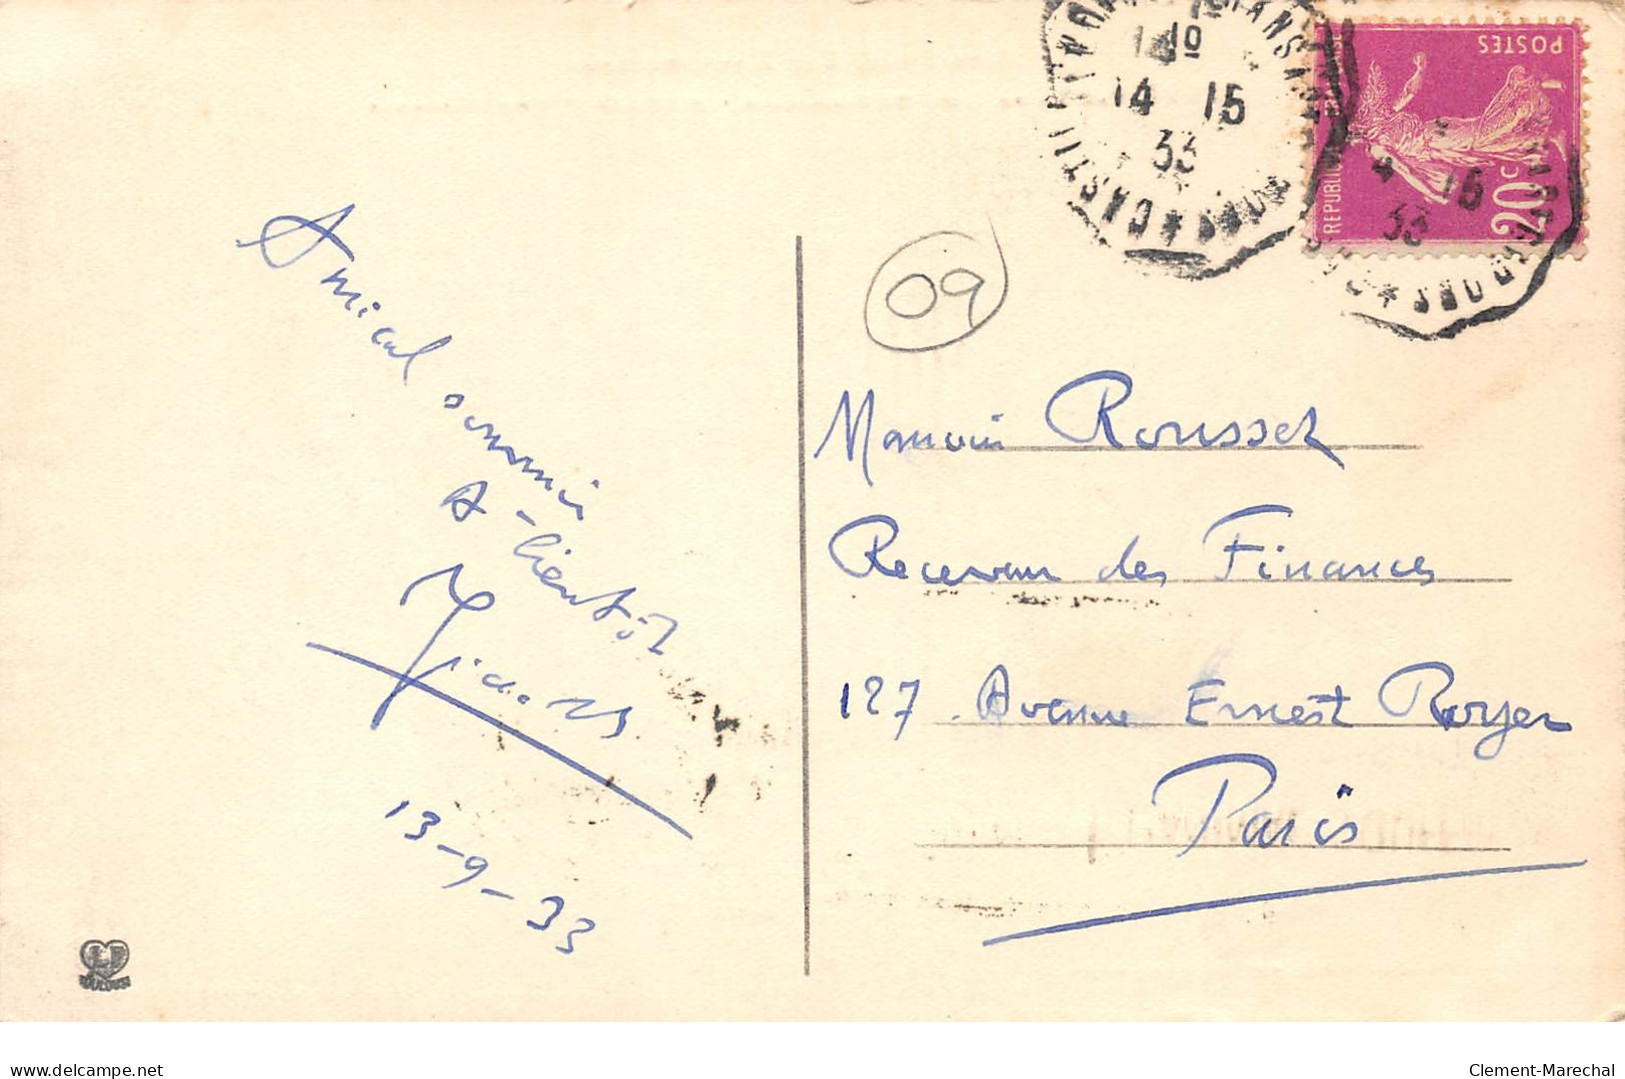 Amical souvenir
A-bientôt
13-9-33
TOULOUSE
09
14 15
33
POSTES
REPUBLIQUE FRANÇAISE
20c
4 15
33
Monsieur Rousset
Receveur des Finances
127 Avenue Ernest Royer
Paris
Clement-Marechal